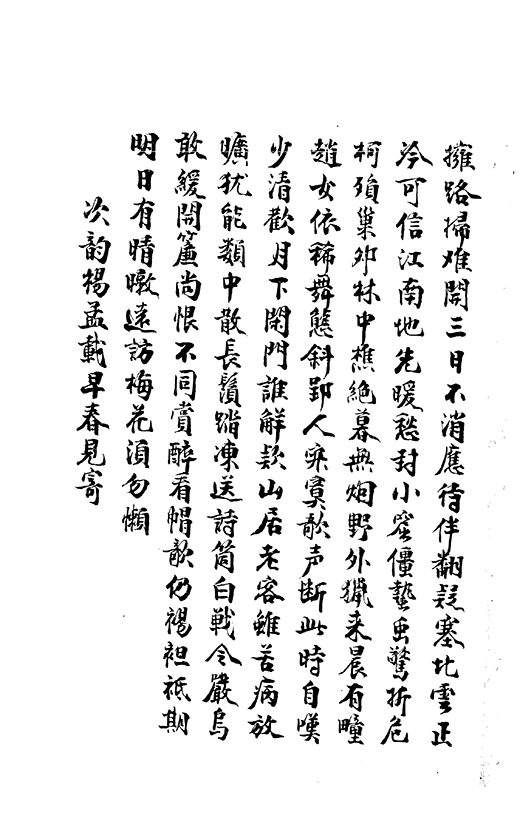 擁路掃难開三日不消應待伴翻疑塞北雲正
冷可信江南地先暖愁封小窑僵蟄虫驚折危
柯殞巢卵林中樵絶暮無烟野外獵来晨有疃
趙女依稀舞態斜郢人寂寞歌声断此時自嘆
少清歡月下閉門誰解款山居老客雖苦病放
曠犹能類中散長鬚踏凍送詩筒白戦令嚴烏
敢緩開簾尚恨不同賞醉看帽歌仍裼袒祇期
明日有晴暾遠訪梅花湏勿懶
次韵楊孟載早春見寄